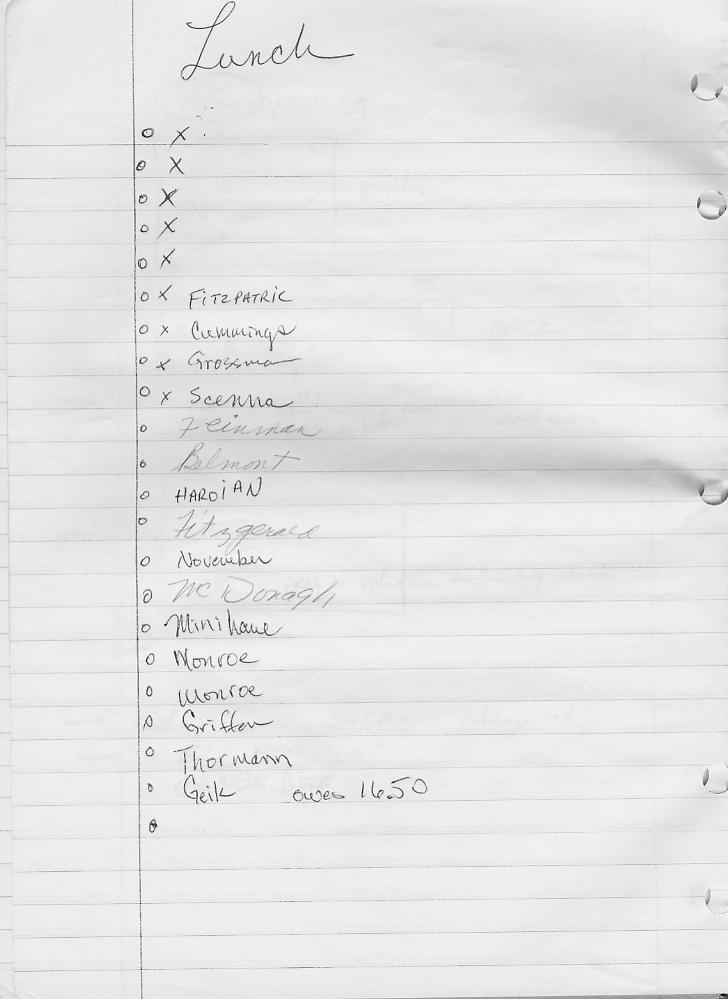 Lunch
o x
o x
o x
o x
o x
o x FITZPATRIC
o x Cummings
o x Grossman
o x Scenna
o Feinman
o Belmont
o HAROIAN
o Fitzgerald
o November
o McDonagh
o Minihane
o Monroe
o Monroe
o Griffen
o Thormann
o Geik owes 16.50
o